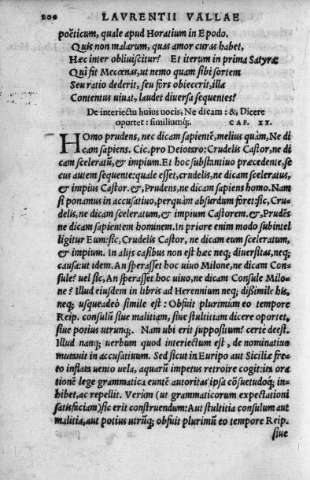 200 LAVRENTII VALLAE
poëticum, quale apud Horatium in Epodo.
Quis non malarum, quas amor curas habet,
Hæc inter obliuiscitur? Et iterum in prima Satyra
Quî fit Mecœnas, ut nemo quam sibi sortem
Seu ratio dederit, seu fors obiecerit, illa
Contentus uiuat, laudet diuersa sequentes?
De interiectu huius uocis, Ne dicam: &, Dicere
oportet: similiumq;. CAP. XX.
HOmo prudens, nec dicam sapientẽ, melius quàm, Ne di
cam sapiens. Cic. pro Deiotaro: Crudelis Castor, ne di
cam sceleratũ, & impium. Et hoc substantiuo præcedente, se
cus autem sequente: quale esset, crudelis, ne dicam sceleratus,
& impius Castor. &, Prudens, ne dicam sapiens homo. Nam
si ponamus in accusatiuo, perquàm absurdum foret: sic, Cru-
delis, ne dicam sceleratum, & impium Castorem. &, Prudẽs
ne dicam sapientem hominem. In priore enim modo subintel
ligitur Eum: sic, Crudelis Castor, ne dicam eum sceleratum,
& impium. In alijs casibus non est hæc neq; diuersitas, neq;
causa: ut idem. An sperasset hoc uiuo Milone, ne dicam Con-
sule? uel sic, An sperasset hoc uiuo, ne dicam Consule Milo-
ne? Illud eiusdem in libris ad Herennium neq; dissimile his,
neq; usqueadeò simile est: Obfuit plurimum eo tempore
Reip. consulũ siue malitiam, siue stultitiam dicere oportet,
siue potius utrunq;. Nam ubi erit suppositum? certe deest.
Illud nanq; uerbum quod interiectum est, de nominatiuo
mutauit in accusatiuum. Sed sicut in Euripo aut Siciliæ fre-
to inflata uento uela, aquarũ impetus retroire cogit: ita ora
tionẽ lege grammatica euntẽ autoritas ipsa cõsuetudoq; in-
hibet, ac repellit. Verùm (ut grammaticorum expectationi
satisfaciam) sic erit construendum: Aut stultitia consulum aut
malitia, aut potius utrũq; obfuit plurimũ eo tempore Reip.
siue